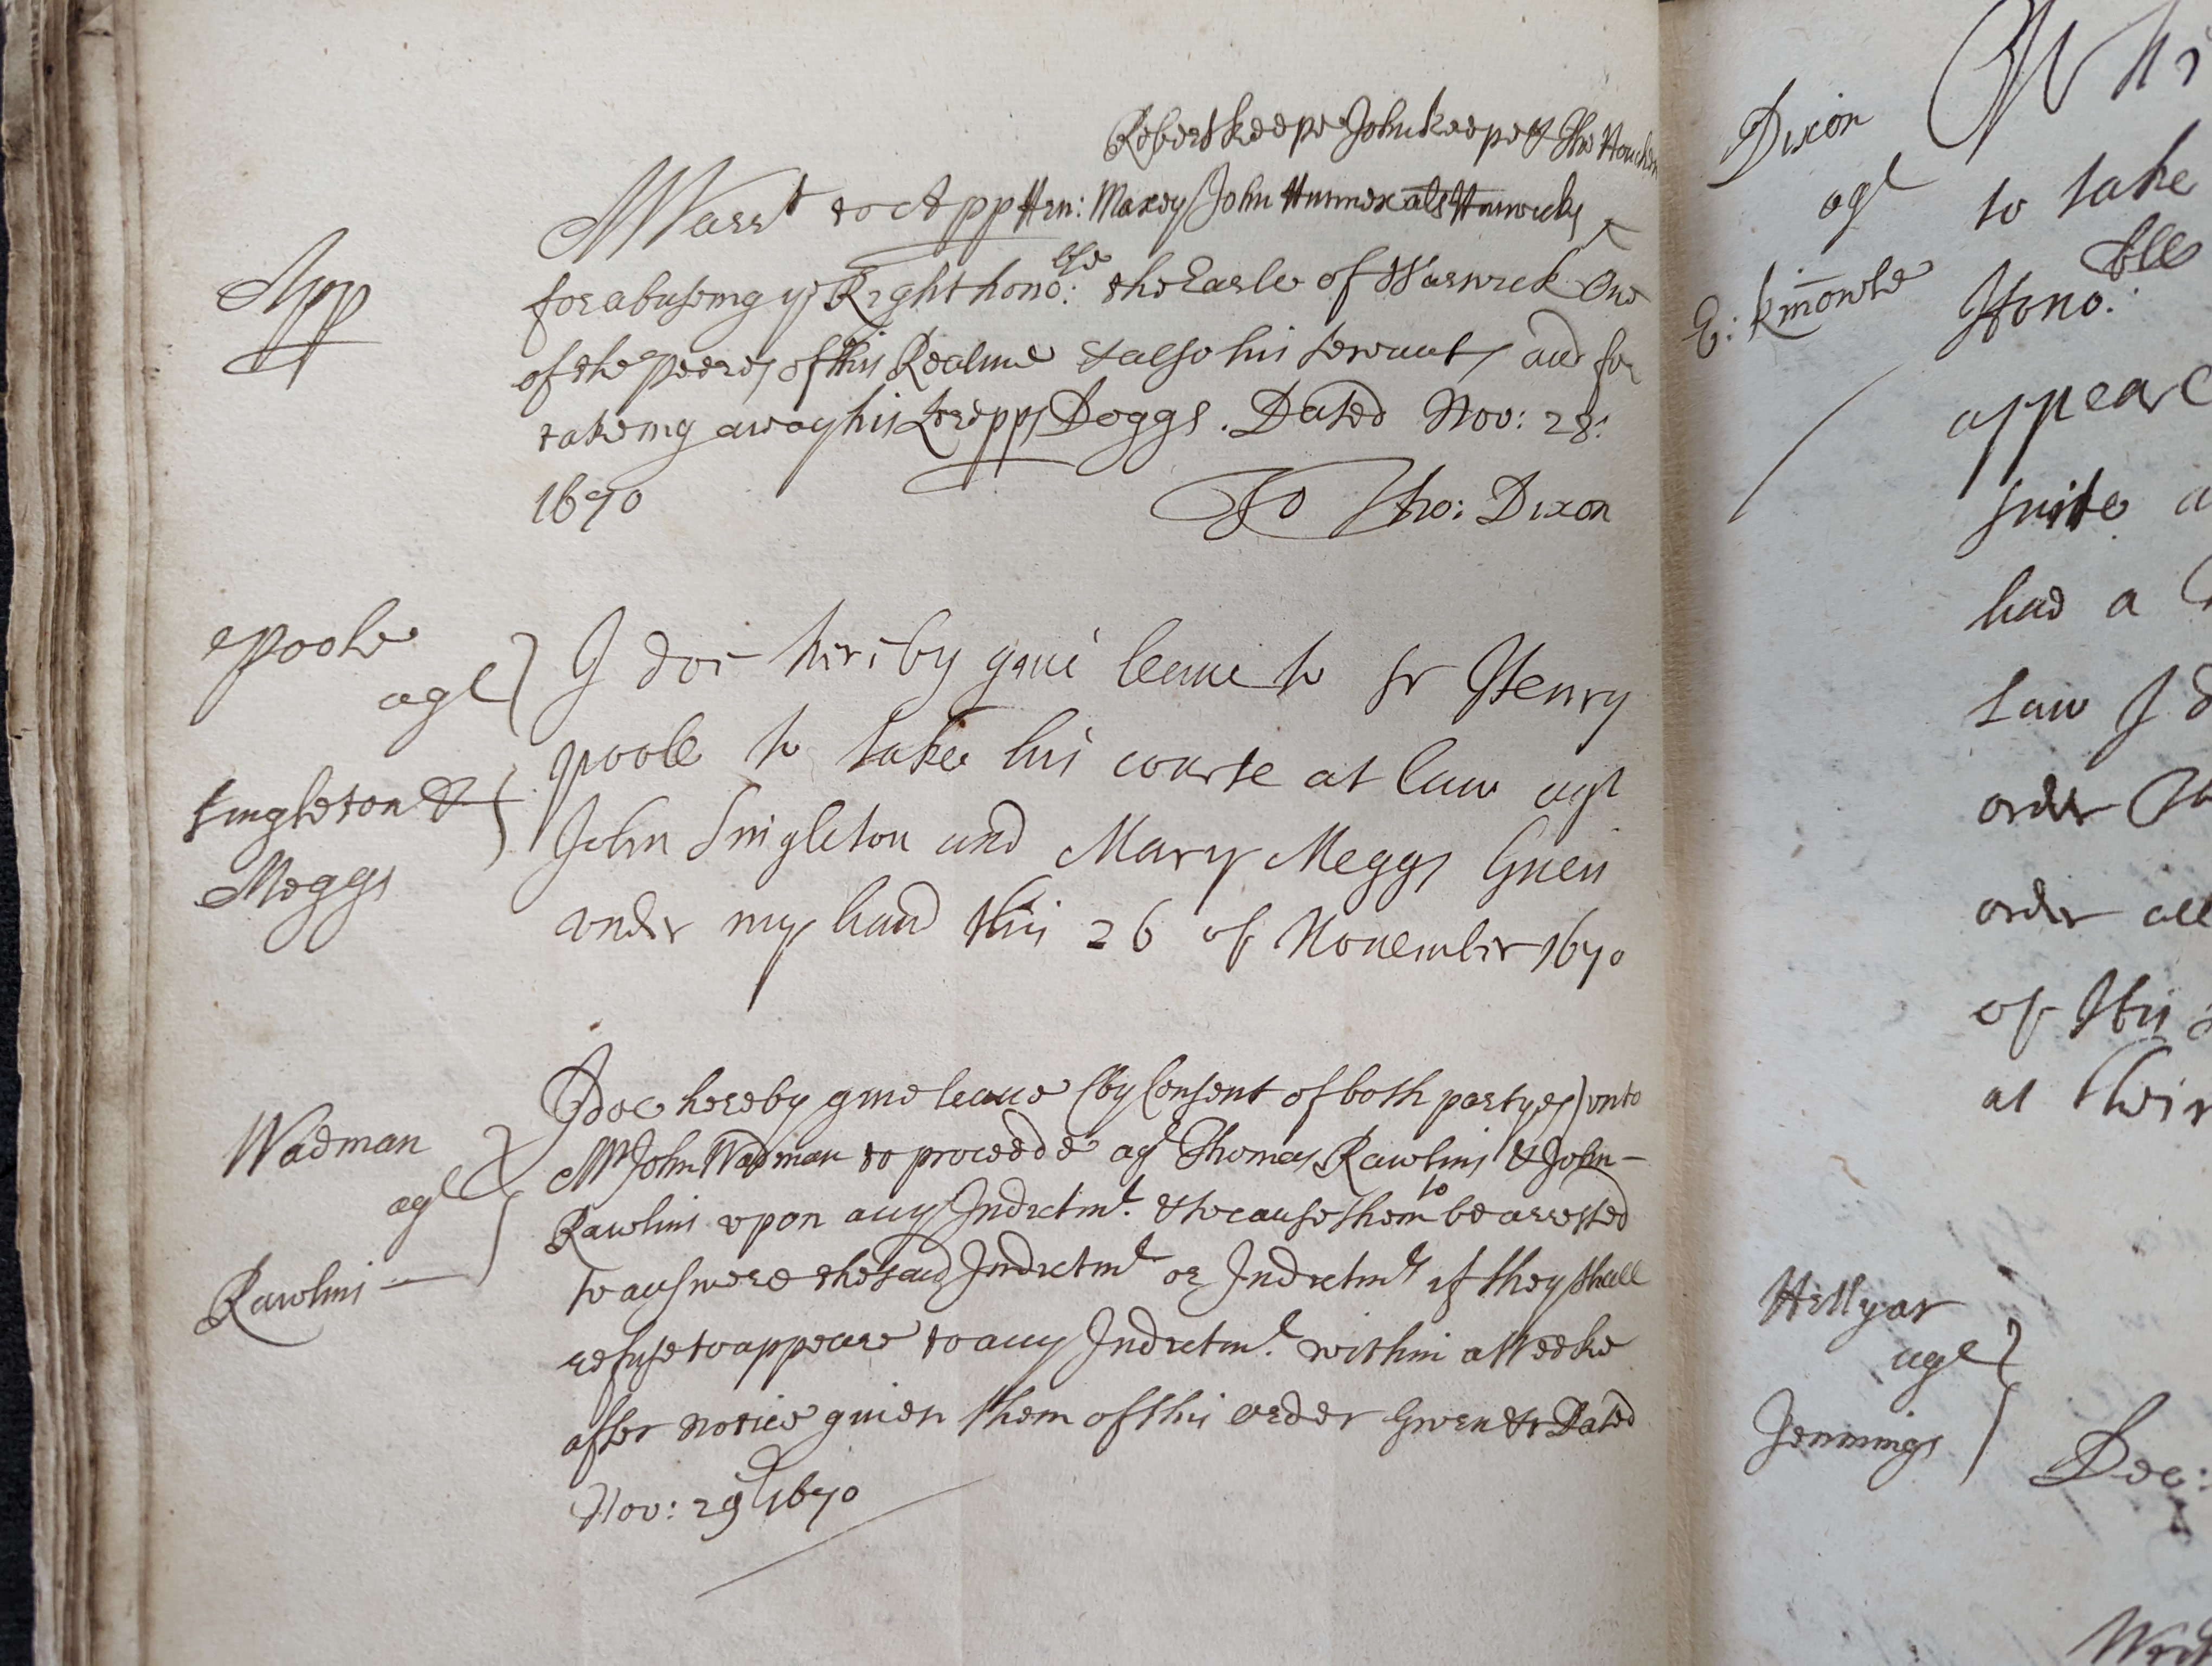 Robert Keepe John Keepe & Tho
App
Warrt to App Hen: Maxey John Hunnex als
for abuseing ye Right hono:ble the Earle of Warwick One
of the Peeres of this Realme & also his servants and for
takeing away his Doggs. Dated Nov: 28:
1670
To Tho: Dixon
Poole
agt
Singleton &
Meggs
I doe hereby giue leaue to Sr Henry
Poole to take his course at law agt
John Singleton and Mary Meggs Giuen
vnder my hand this 26 of Nouember 1670
Wadman
agt
Rawlins
I doe hereby giue leaue (by Consent of both partyes) vnto
Mr John Wadman to proceede agt Thomas Rawlins & John
Rawlins vpon any Indictmt. & to cause them to be arrested
to answere the said Indictmt or Indictmts if they shall
refuse to appeare to any Indictmt. within a Weeke
after notice giuen them of this order Given &c Dated
Nov: 29th 1670
Dixon
agt
E: Kinnowle
to take
Hono:ble
appeare
suite a
had a
Law I d
order
order all
of this
at their
Hellyar
agt
Jennings
Dec: